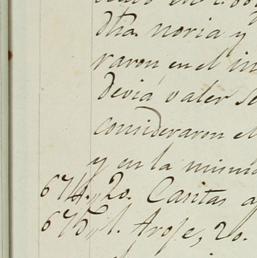 dha. noria y
raron en el in
devia valer se
consideraron el
y en la misma
674,, 20. Caritas a
675,, 1. Arose, 20.